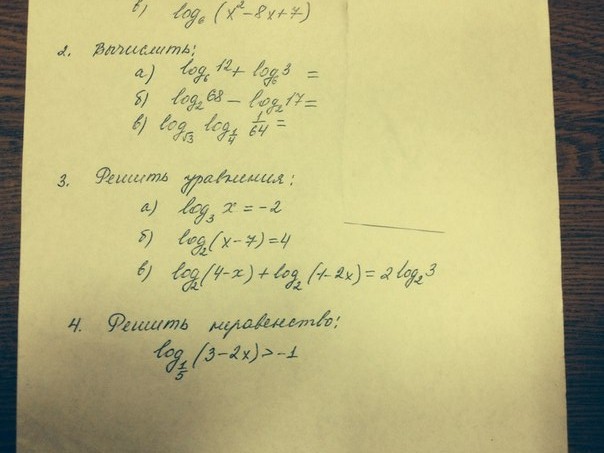 в) log₆ (x²-8x+7)
2. Вычислить:
а) log₆12 + log₆3 =
б) log₂68 - log₂17 =
в) log_√3 log_1/4 1/64 =
3. Решить уравнения:
а) log₃ x = -2
б) log₂(x-7)=4
в) log₂(4-x)+log₂(1-2x)=2log₂3
4. Решить неравенство:
log_1/5 (3-2x)>-1